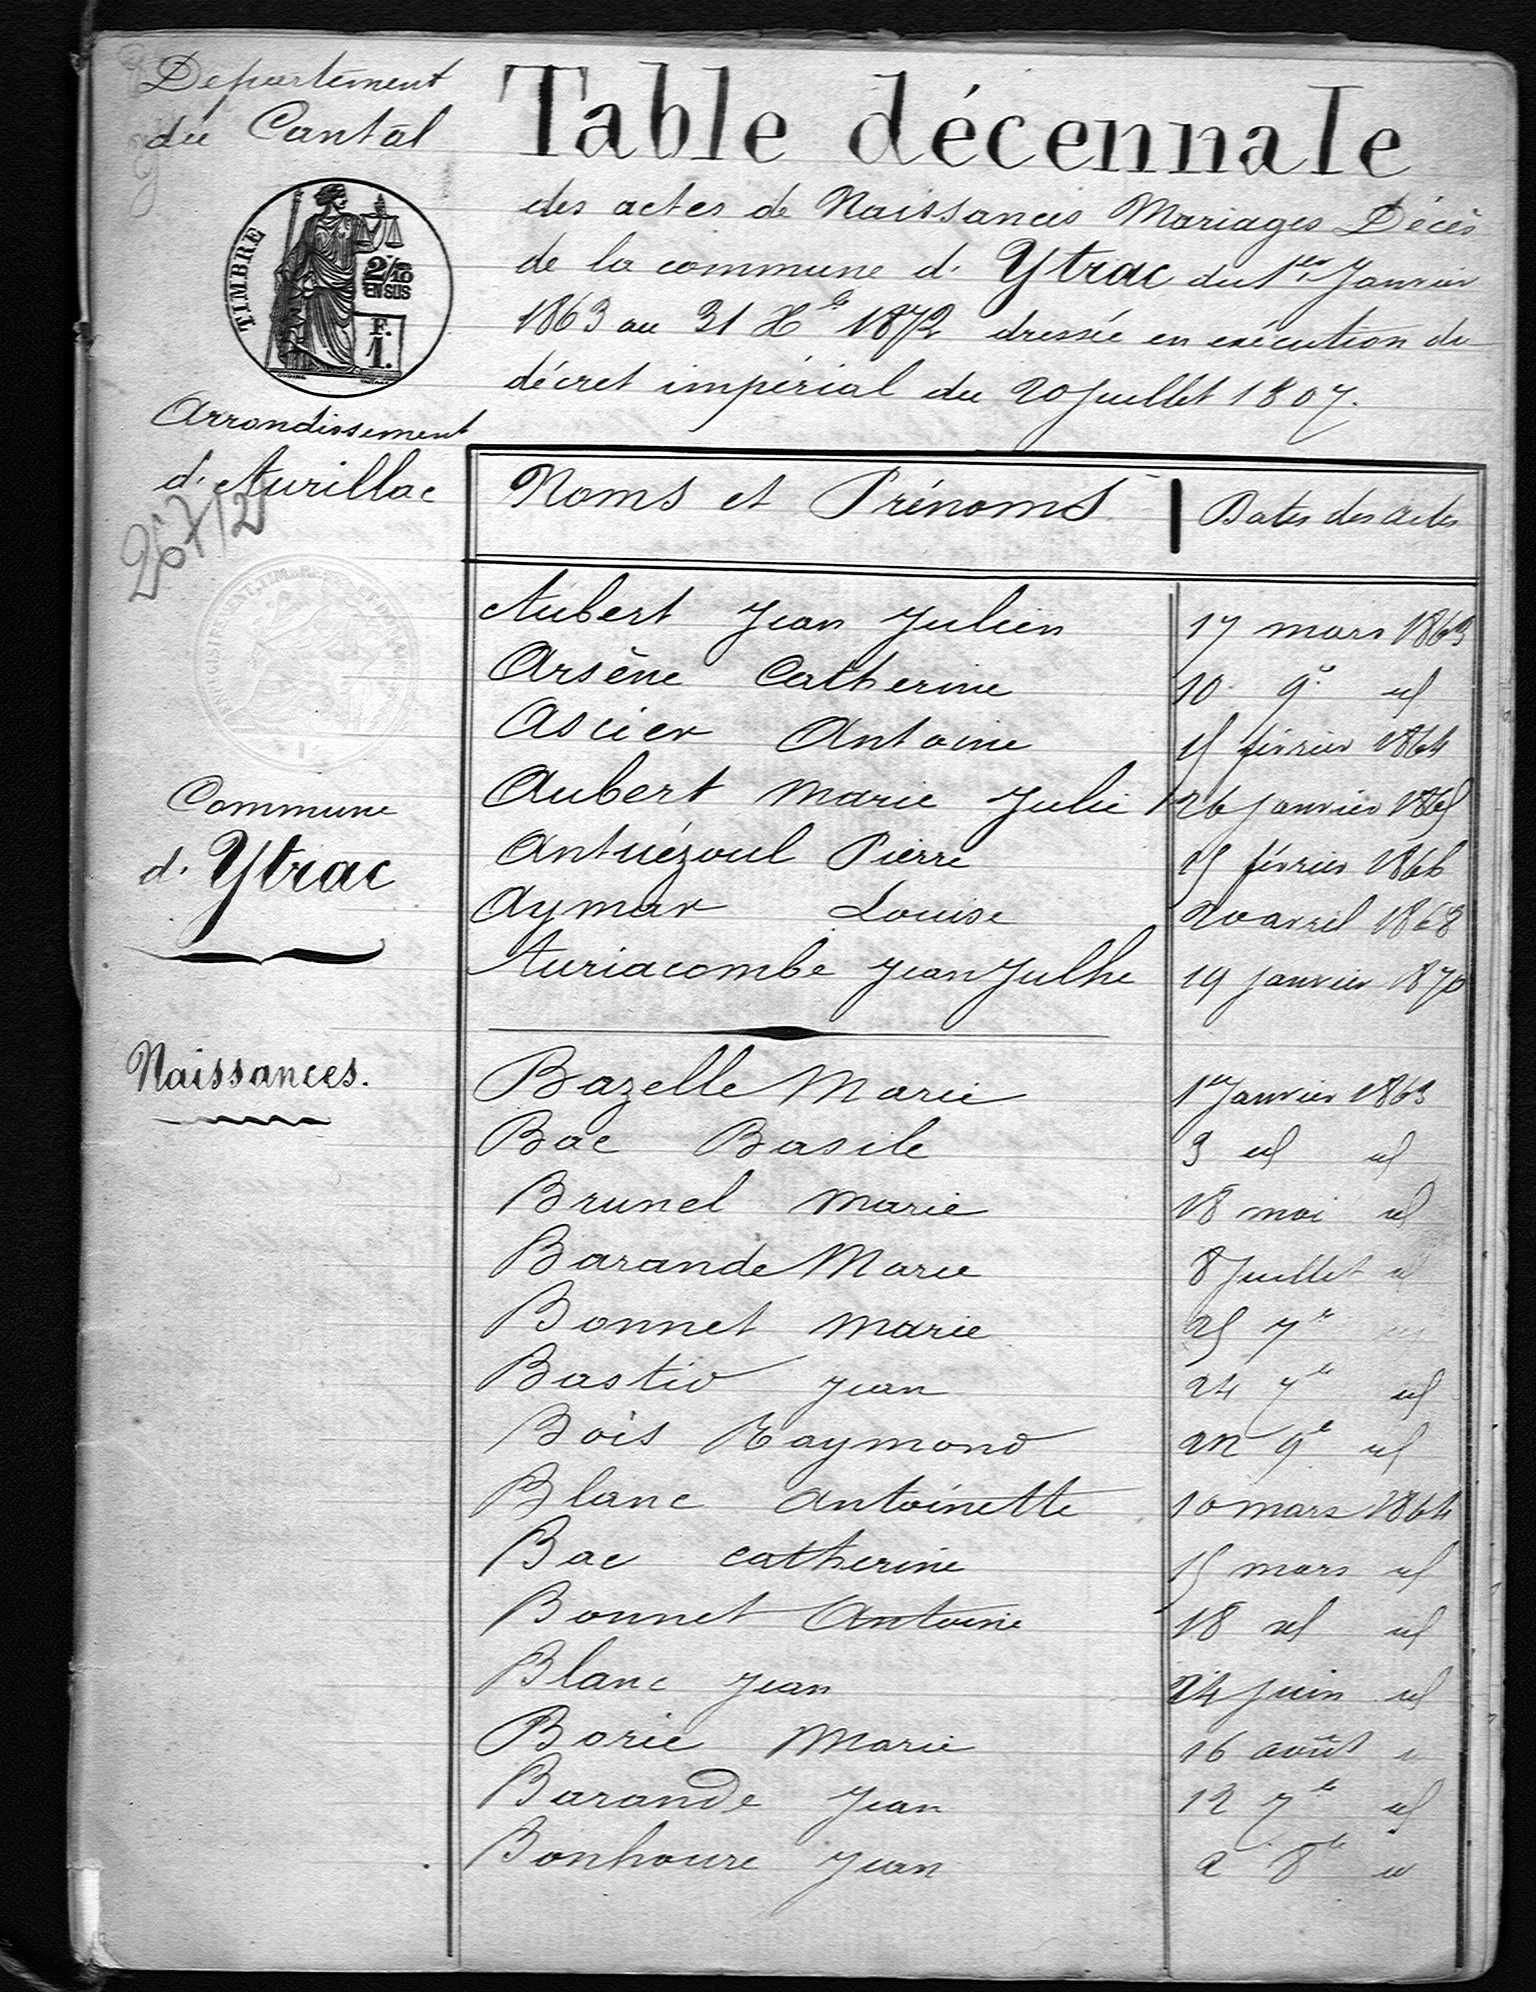 Département
du Cantal
TIMBRE
2/10
EN SUS
F.
1.
Arrondissement
d'Aurillac
26712
Commune
d'Ytrac
Naissances.
Table décennale
des actes de Naissances Mariages Décès
de la commune d'Ytrac du 1er Janvier
1863 au 31 Xbre 1872 dressée en exécution du
décret impérial du 20 Juillet 1807.
Noms et Prénoms Dates des actes
Aubert Jean Julien 17 mars 1863
Arsène Catherine 10 9e id
Ascier Antoine 15 février 1864
Aubert Marie Julie 26 janvier 1865
Antuézoul Pierre 15 février 1866
Aymar Louise 20 avril 1868
Auriacombe Jean Julhe 19 janvier 1870
Bazelle Marie 1er Janvier 1863
Bac Basile 3 id id
Brunel Marie 18 mai id
Barande Marie 8 Juillet id
Bonnet Marie 25 7e id
Bastid Jean 24 7e id
Bois Raymond 22 9e id
Blanc Antoinette 10 mars 1864
Bac Catherine 15 mars id
Bonnet Antoine 18 id id
Blanc Jean 24 juin id
Borie Marie 16 août id
Barande Jean 12 7e id
Bonhoure Jean 2 8e id